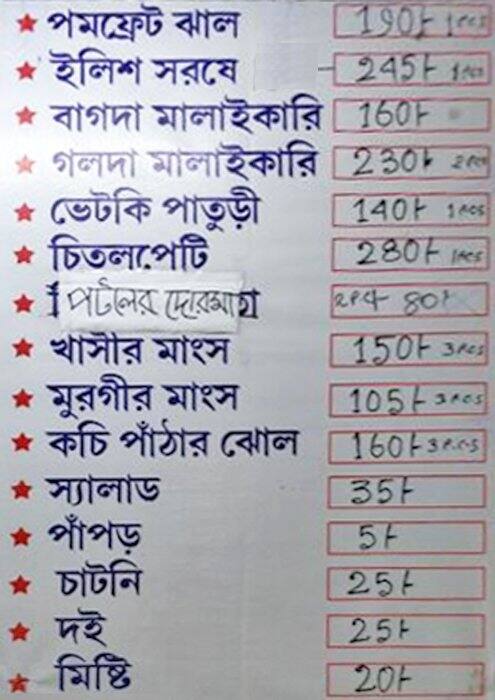 পমফ্রেট ঝাল 190/- 1 pcs
ইলিশ সরষে - 245/- 1 pcs
বাগদা মালাইকারি 160/-
গলদা মালাইকারি 230/- 2 pcs
ভেটকি পাতুড়ী 140/- 1 pcs
চিতলপেটি 280/- 1 pcs
পটলের দোরমা 80/-
খাসীর মাংস 150/- 3 pcs
মুরগীর মাংস 105/- 3 pcs
কচি পাঁঠার ঝোল 160/- 3 pcs
স্যালাড 35/-
পাঁপড় 5/-
চাটনি 25/-
দই 25/-
মিষ্টি 20/-